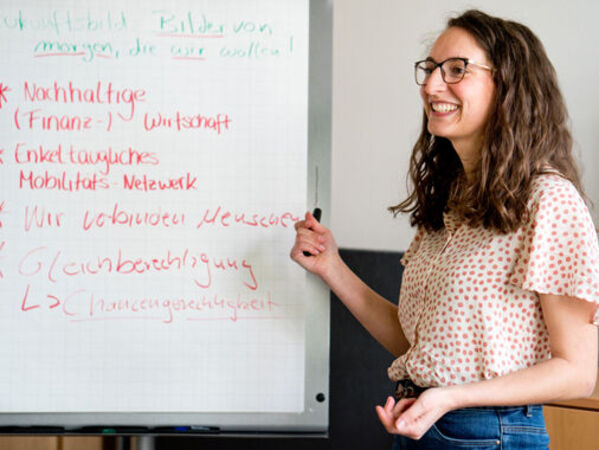 Zukunftsbild - Bilder von
morgen, die wir wollen!
* Nachhaltige
(Finanz-) Wirtschaft
* Enkeltaugliches
Mobilitäts-Netzwerk
* Wir verbinden Menschen
* Gleichberechtigung
↳ Chancengerechtigkeit